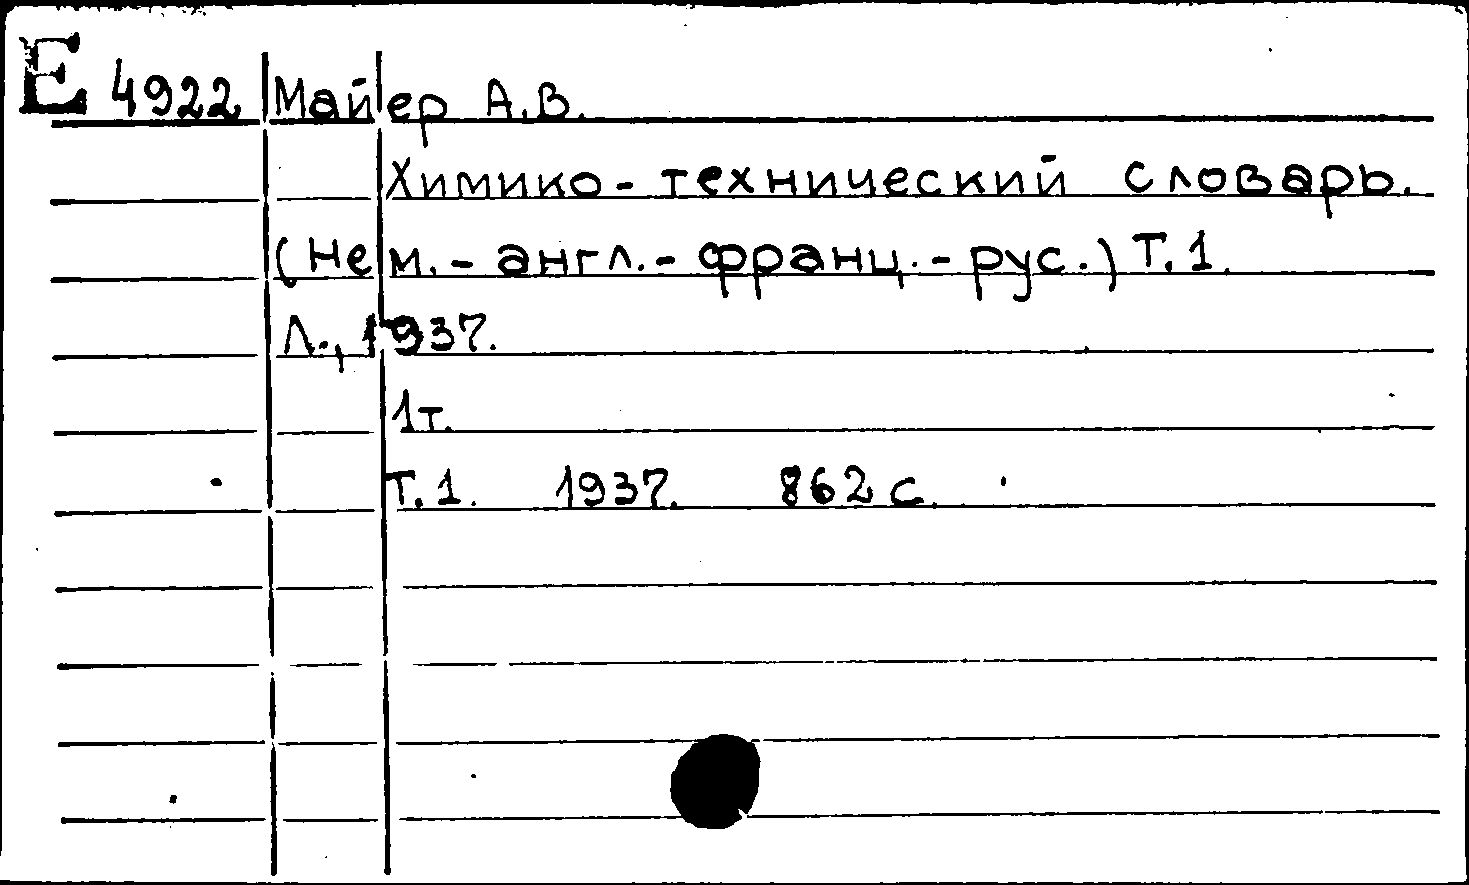 Е 4922 Майер А.В.
Химико-технический словарь.
(Нем.-англ.-франц.-рус.) Т.1.
Л., 1937.
1т.
Т.1. 1937. 862 с.